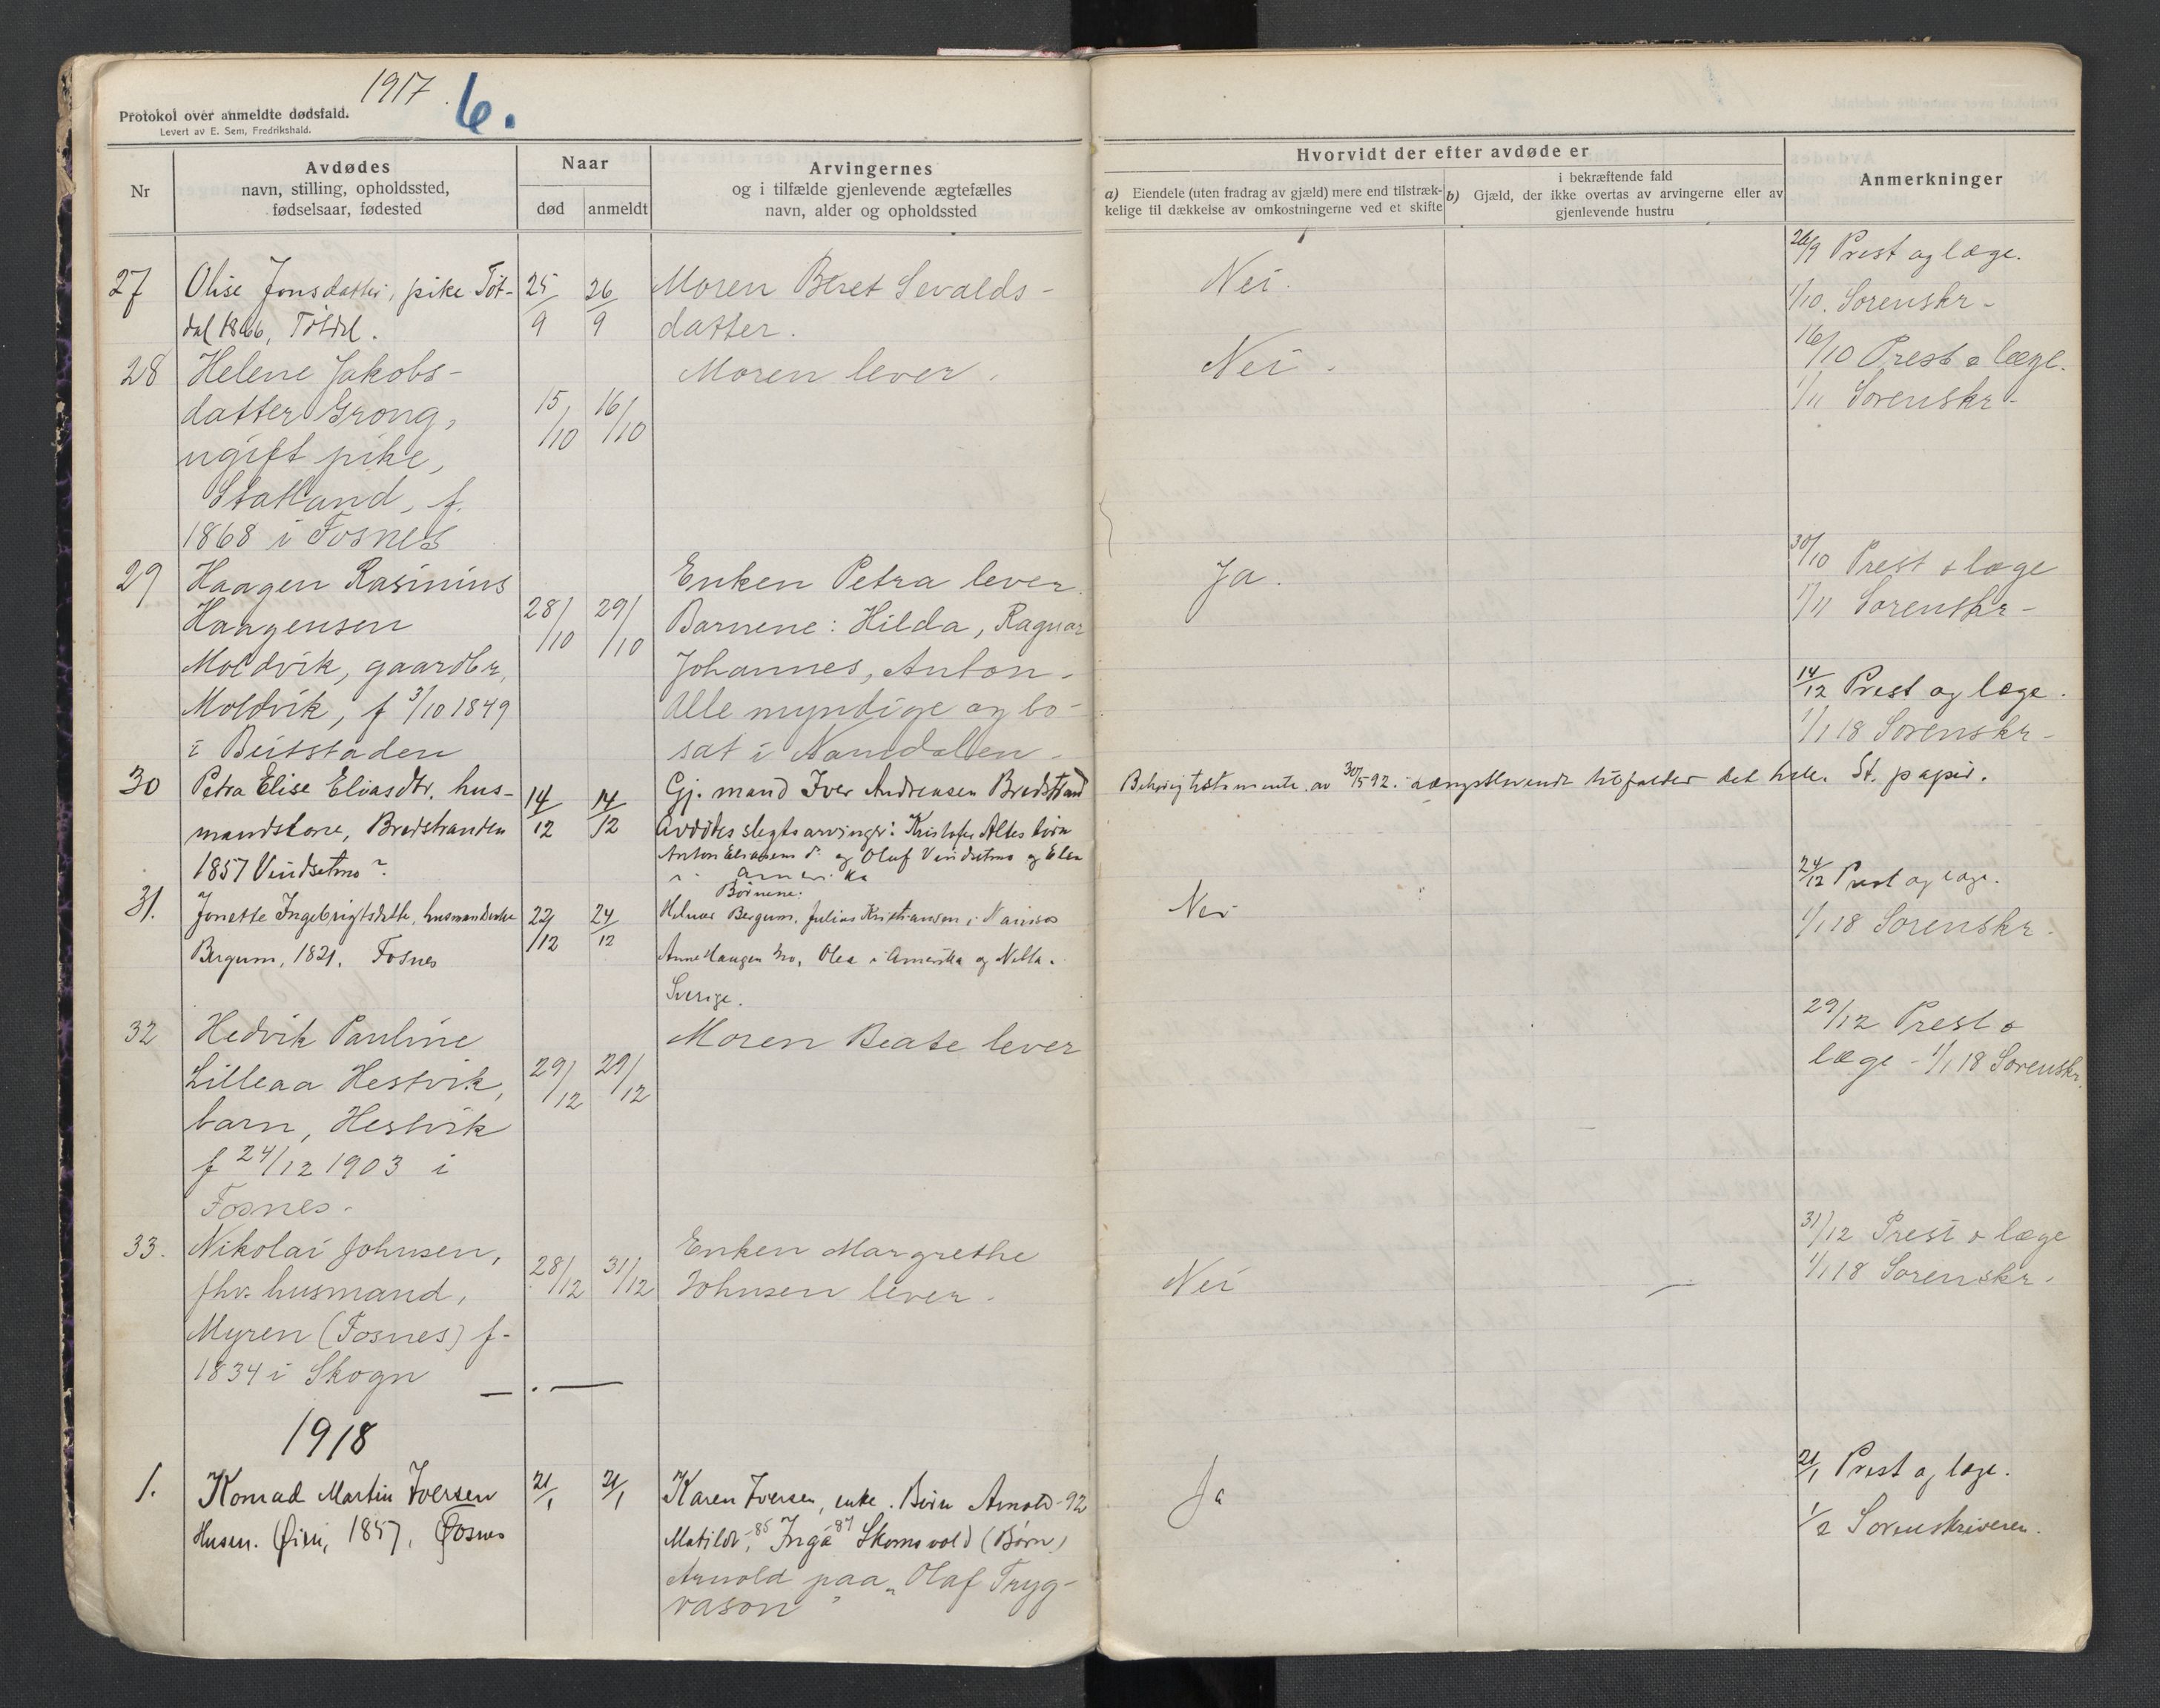 1917
6.
Protokol over anmeldte dødsfald.
Levert av E. Sem, Fredrikshald.
Nr
Avdødes
navn, stilling, opholdssted,
fødselsaar, fødested
Naar
død
anmeldt
Arvingernes
og i tilfælde gjenlevende ægtefælles
navn, alder og opholdssted
Hvorvidt der efter avdøde er
a) Eiendele (uten fradrag av gjæld) mere end tilstræk-
kelige til dækkelse av omkostningerne ved et skifte
i bekræftende fald
b) Gjæld, der ikke overtas av arvingerne eller av
gjenlevende hustru
Anmerkninger
27
Olise Jonsdatter, pike Töt-
dal 1866, Tötdal.
25/9
26/9
Moren Beret Sevalds-
datter.
Nei.
26/9 Prest og læge.
1/10. Sorenskr-
28
Helene Jakobs-
datter Grong,
ugift pike,
Statland, f.
1868 i Fosnes
15/10
16/10
Moren lever.
Nei.
16/10 Prest o læge.
1/11 Sorenskr-
29
Haagen Rasinius
Haagensen
Moldvik, gaardbr,
Moldvik, f 3/10 1849
i Beitstaden
28/10
29/10
Enken Petra lever.
Barnene: Hilda, Ragnar
Johannes, Anton-
Alle myndige og bo-
sat i Namdalen-
Ja.
30/10 Prest o læge
1/11 Sorenskr-
30
Petra Elise Eliasdtr. hus-
mandskone, Bredstranden
1857 Vindsetmo
14/12
14/12
Gj. mand Iver Andreasen Bredstrand
Avdødes slegtsarvinger: Kristofer
Anton Eliasen og Oluf Vindsetmo og Elen
i Amerika
testamente av 30/5 92. længstlevende tilfalder det hele. St. papir.
14/12 Prest og læge.
1/1 18 Sorenskr-
31.
Jonette Ingebrigtsdatter, husmandsenke
Bergum, 1821. Fosnes
22/12
24/12
Börnene:
Bergum, Julius Kristiansen i Namsos
Anne Haugen, Olea i Amerika og
Sverige.
Nei
24/12 Prest og læge.
1/1 18 Sorenskr.
32
Hedvik Pauline
Lilleaa Hestvik,
barn, Hestvik
f 24/12 1903 i
Fosnes-
29/12
29/12
Moren Beate lever
29/12 Prest o
læge - 1/1 18 Sorenskr.
33.
Nikolai Johnsen,
fhv. husmand,
Myren (Fosnes) f-
1834 i Skogn
28/12
31/12
Enken Margrethe
Johnsen lever.
Nei
31/12 Prest o læge
1/1 18 Sorenskr.
1918
1.
Konrad Martin Iversen
Husm. Öien, 1857, Fosnes
21/1
21/1
Karen Iversen, enke. Börn Arnold-92
Matilde-85, Inga-87 Skomsvold (Börn)
Arnold paa "Olaf Tryg-
vason"
Ja
21/1 Prest og læge.
1/2 Sorenskriveren.